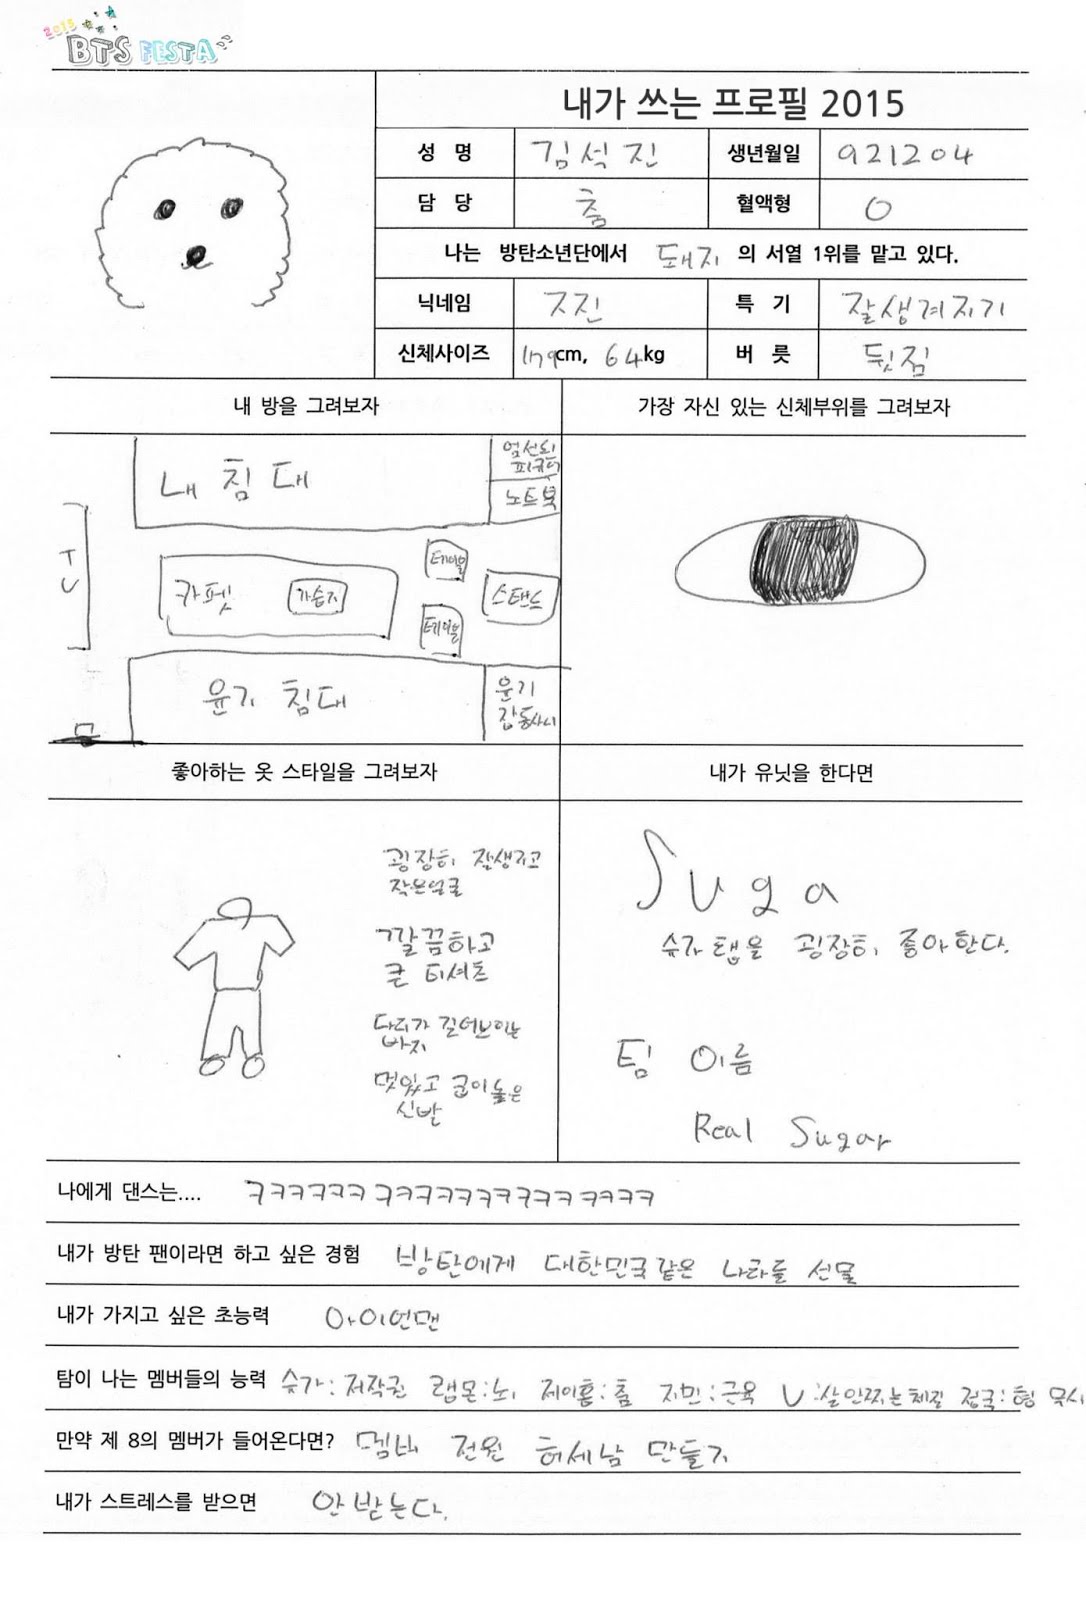 2015
BTS FESTA
내가 쓰는 프로필 2015
성 명 김석진 생년월일 921204
담 당 춤 혈액형 O
나는 방탄소년단에서 돼지 의 서열 1위를 맡고 있다.
닉네임 ㅈ진 특 기 잘생겨지기
신체사이즈 179cm, 64kg 버 릇 뒷짐
내 방을 그려보자
내 침대
엄선된
피규어
노트북
TV
카펫
가습기
테이블
테이블
스탠드
윤기 침대
윤기
잡동사니
문
가장 자신 있는 신체부위를 그려보자
좋아하는 옷 스타일을 그려보자
굉장히 잘생기고
작은얼굴
깔끔하고
큰 티셔츠
다리가 길어보이는
바지
멋있고 굽이높은
신발
내가 유닛을 한다면
Suga
슈가 탭을 굉장히 좋아한다.
팀 이름
Real Sugar
나에게 댄스는.... ㅋㅋㅋㅋㅋㅋ ㅋㅋㅋㅋㅋㅋㅋㅋㅋㅋ ㅋㅋㅋㅋ
내가 방탄 팬이라면 하고 싶은 경험 방탄에게 대한민국같은 나라를 선물
내가 가지고 싶은 초능력 아이언맨
탐이 나는 멤버들의 능력 슈가:저작권 랩몬:뇌 제이홉:춤 지민:근육 V:살안찌는체질 정국:형 무시
만약 제 8의 멤버가 들어온다면? 멤버 전원 허세남 만들기
내가 스트레스를 받으면 안 받는다.